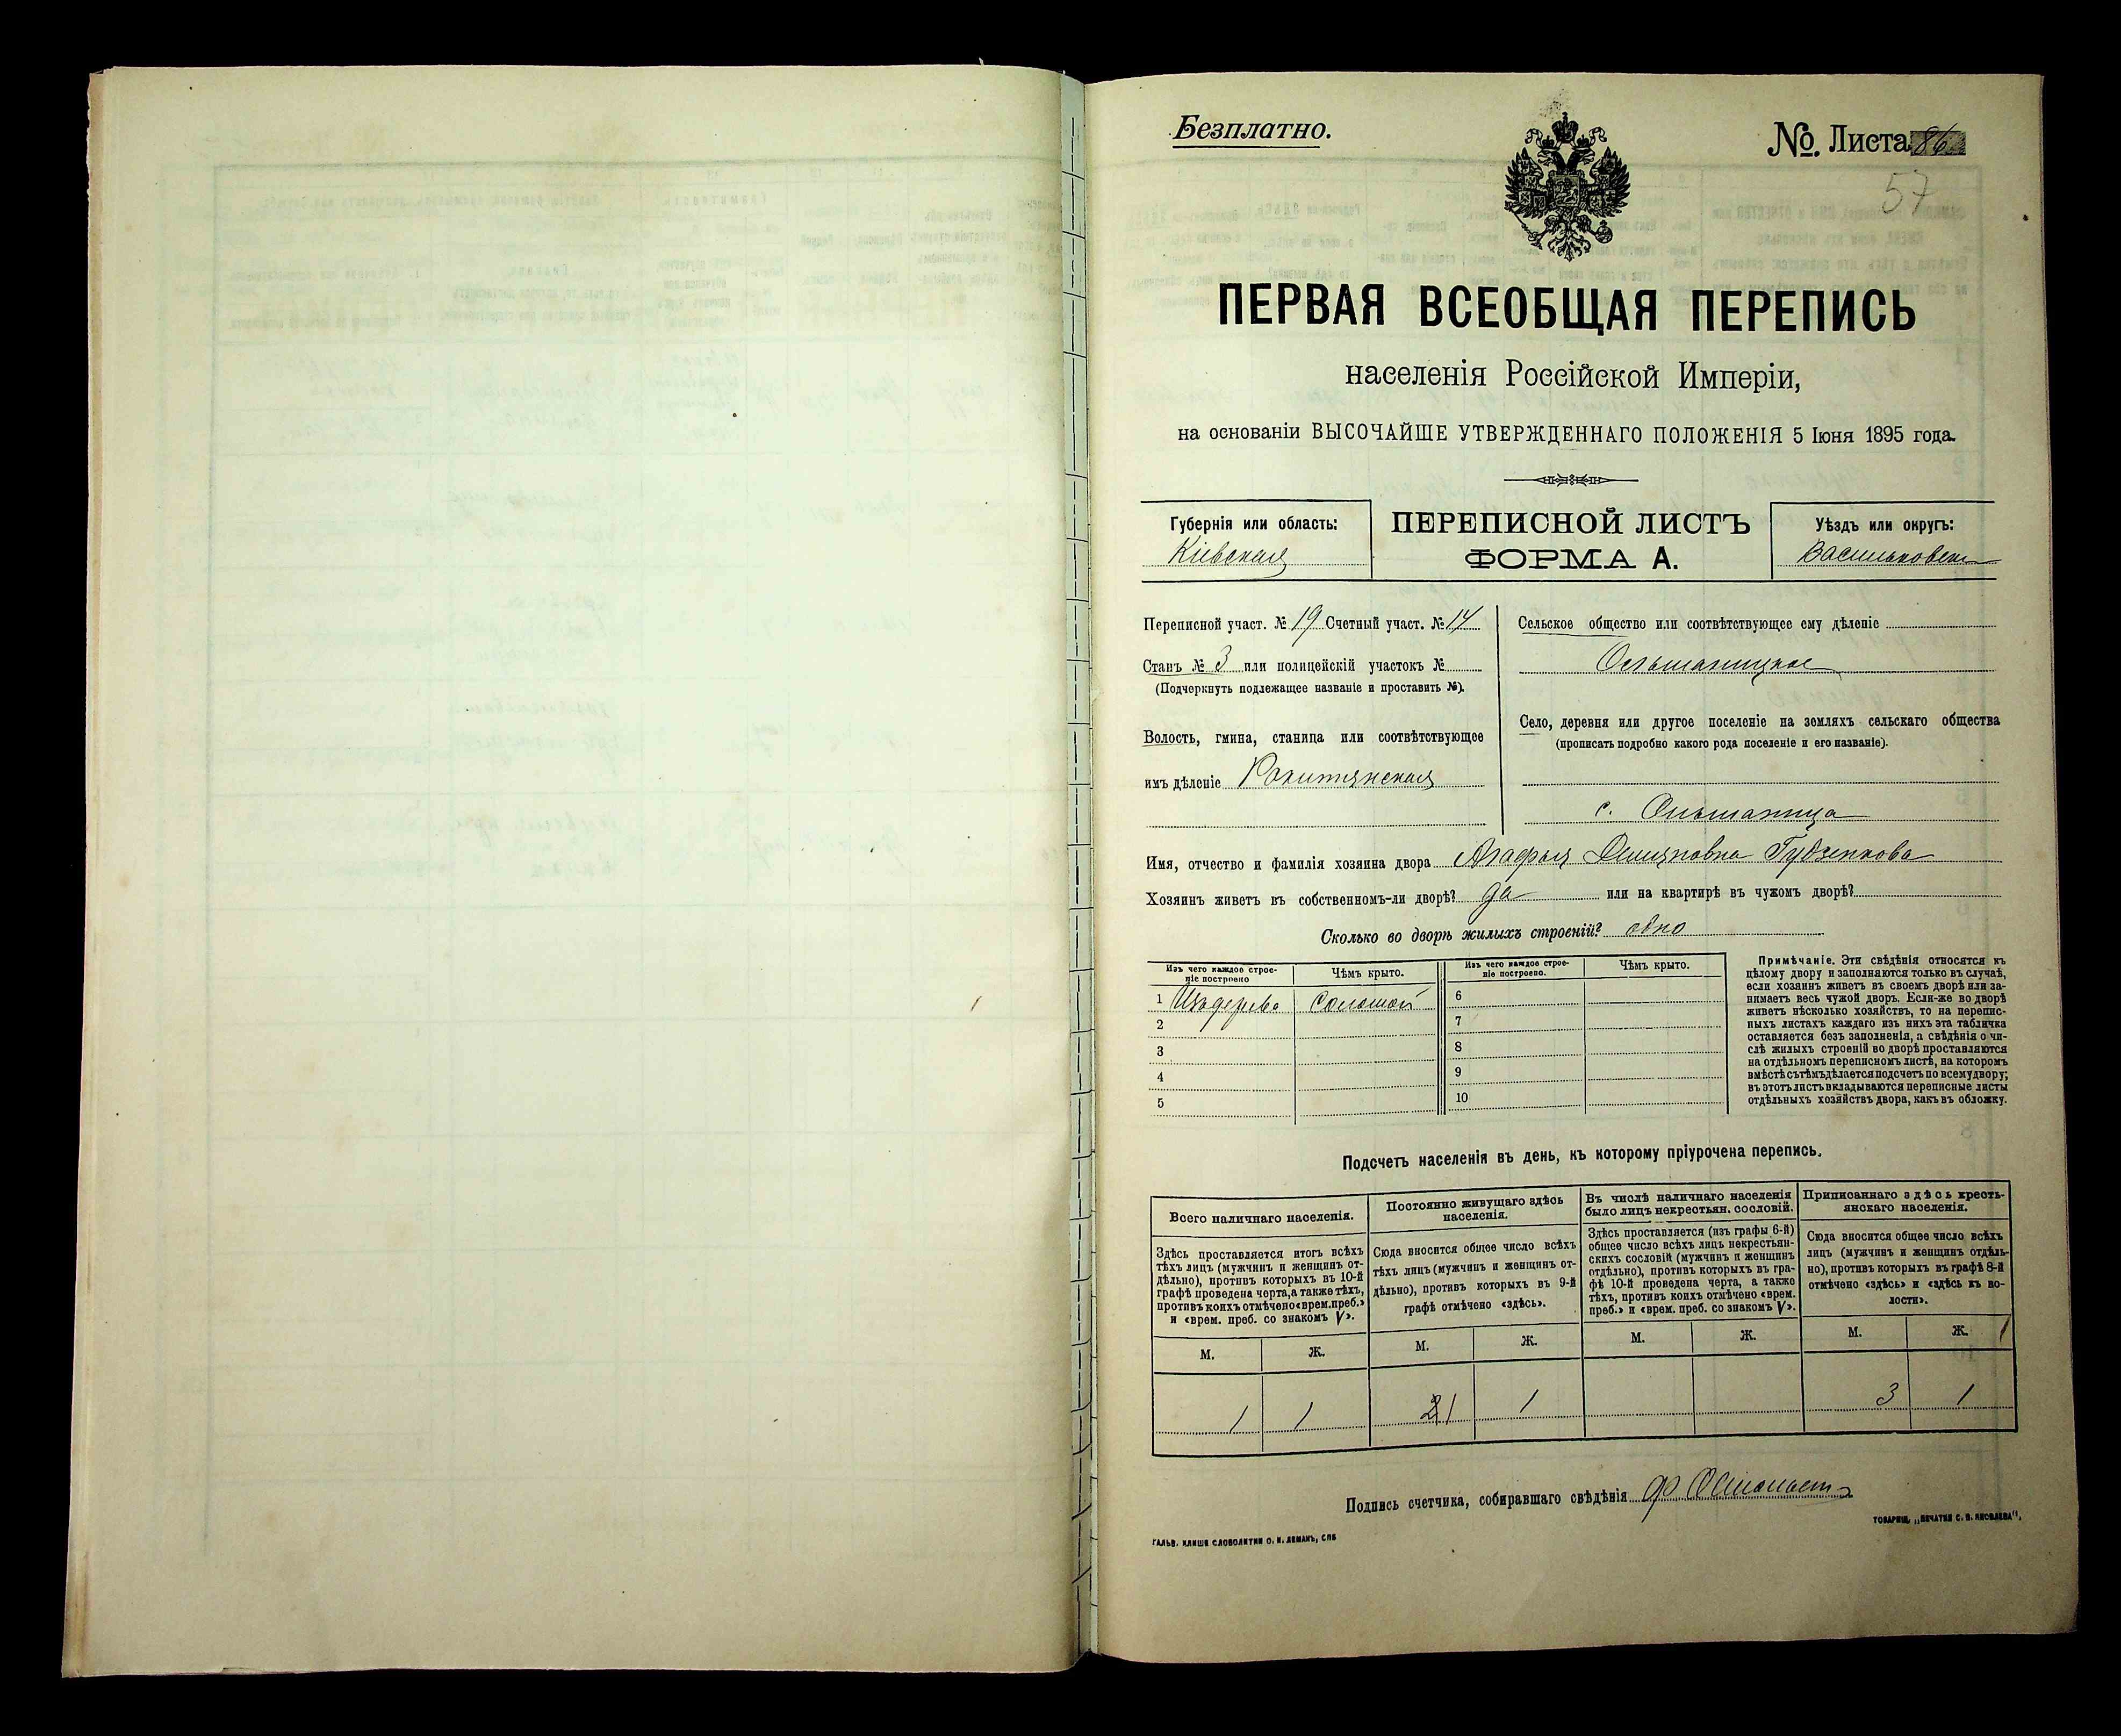 Безплатно.
№ Листа 86
57
ПЕРВАЯ ВСЕОБЩАЯ ПЕРЕПИСЬ
населенія Россійской Имперіи,
на основаніи ВЫСОЧАЙШЕ УТВЕРЖДЕННАГО ПОЛОЖЕНІЯ 5 Іюня 1895 года.
Губернія или область:
Кіевская
ПЕРЕПИСНОЙ ЛИСТЪ
ФОРМА А.
Уѣздъ или округъ:
Васильковск
Переписной участ. № 19 Счетный участ. № 14
Станъ № 3 или полицейскій участокъ №
(Подчеркнуть подлежащее названіе и проставить №).
Волость, гмина, станица или соотвѣтствующее
имъ дѣленіе Рокитянская
Сельское общество или соотвѣтствующее ему дѣленіе
Ольшаницкое
Село, деревня или другое поселеніе на земляхъ сельскаго общества
(прописать подробно какого рода поселеніе и его названіе).
с. Ольшаница
Имя, отчество и фамилія хозяина двора Агафья Демяновна Гудзенкова
Хозяинъ живетъ въ собственномъ-ли дворѣ? да или на квартирѣ въ чужомъ дворѣ?
Сколько во дворѣ жилыхъ строеній? одно
Изъ чего каждое строе-
ніе построено
Чѣмъ крыто.
Изъ чего каждое строе-
ніе построено.
Чѣмъ крыто.
1 Изъ дерева Соломой 6
2 7
3 8
4 9
5 10
Примѣчаніе. Эти свѣдѣнія относятся къ
цѣлому двору и заполняются только въ случаѣ,
если хозяинъ живетъ въ своемъ дворѣ или за-
нимаетъ весь чужой дворъ. Если-же во дворѣ
живетъ нѣсколько хозяйствъ, то на перепис-
ныхъ листахъ каждаго изъ нихъ эта табличка
оставляется безъ заполненія, а свѣдѣнія о чи-
слѣ жилыхъ строеній во дворѣ проставляются
на отдѣльномъ переписномъ листѣ, на которомъ
вмѣстѣ съ тѣмъ дѣлается подсчетъ по всему двору;
въ этотъ листъ вкладываются переписные листы
отдѣльныхъ хозяйствъ двора, какъ въ обложку.
Подсчетъ населенія въ день, къ которому пріурочена перепись.
Всего наличнаго населенія.
Здѣсь проставляется итогъ всѣхъ
тѣхъ лицъ (мужчинъ и женщинъ от-
дѣльно), противъ которыхъ въ 10-й
графѣ проведена черта, а также тѣхъ,
противъ коихъ отмѣчено «врем. преб.»
и «врем. преб. со знакомъ V».
Постоянно живущаго здѣсь
населенія.
Сюда вносится общее число всѣхъ
тѣхъ лицъ (мужчинъ и женщинъ от-
дѣльно), противъ которыхъ въ 9-й
графѣ отмѣчено «здѣсь».
Въ числѣ наличнаго населенія
было лицъ некрестьян. сословій.
Здѣсь проставляется (изъ графы 6-й)
общее число всѣхъ лицъ некрестьян-
скихъ сословій (мужчинъ и женщинъ
отдѣльно), противъ которыхъ въ гра-
фѣ 10-й проведена черта, а также
тѣхъ, противъ коихъ отмѣчено «врем.
преб.» и «врем. преб. со знакомъ V».
Приписаннаго здѣсь кресть-
янскаго населенія.
Сюда вносится общее число всѣхъ
лицъ (мужчинъ и женщинъ отдѣль-
но), противъ которыхъ въ графѣ 8-й
отмѣчено «здѣсь» и «здѣсь къ во-
лости».
М. Ж. М. Ж. М. Ж. М. Ж.
1 1 1 1 3 1
Подпись счетчика, собиравшаго свѣдѣнія
ГАЛЬВ. КЛИШЕ СЛОВОЛИТНИ О. И. ЛЕМАНЪ, СПБ
ТОВАРИЩ. „ПЕЧАТНЯ С. П. ЯКОВЛЕВА".